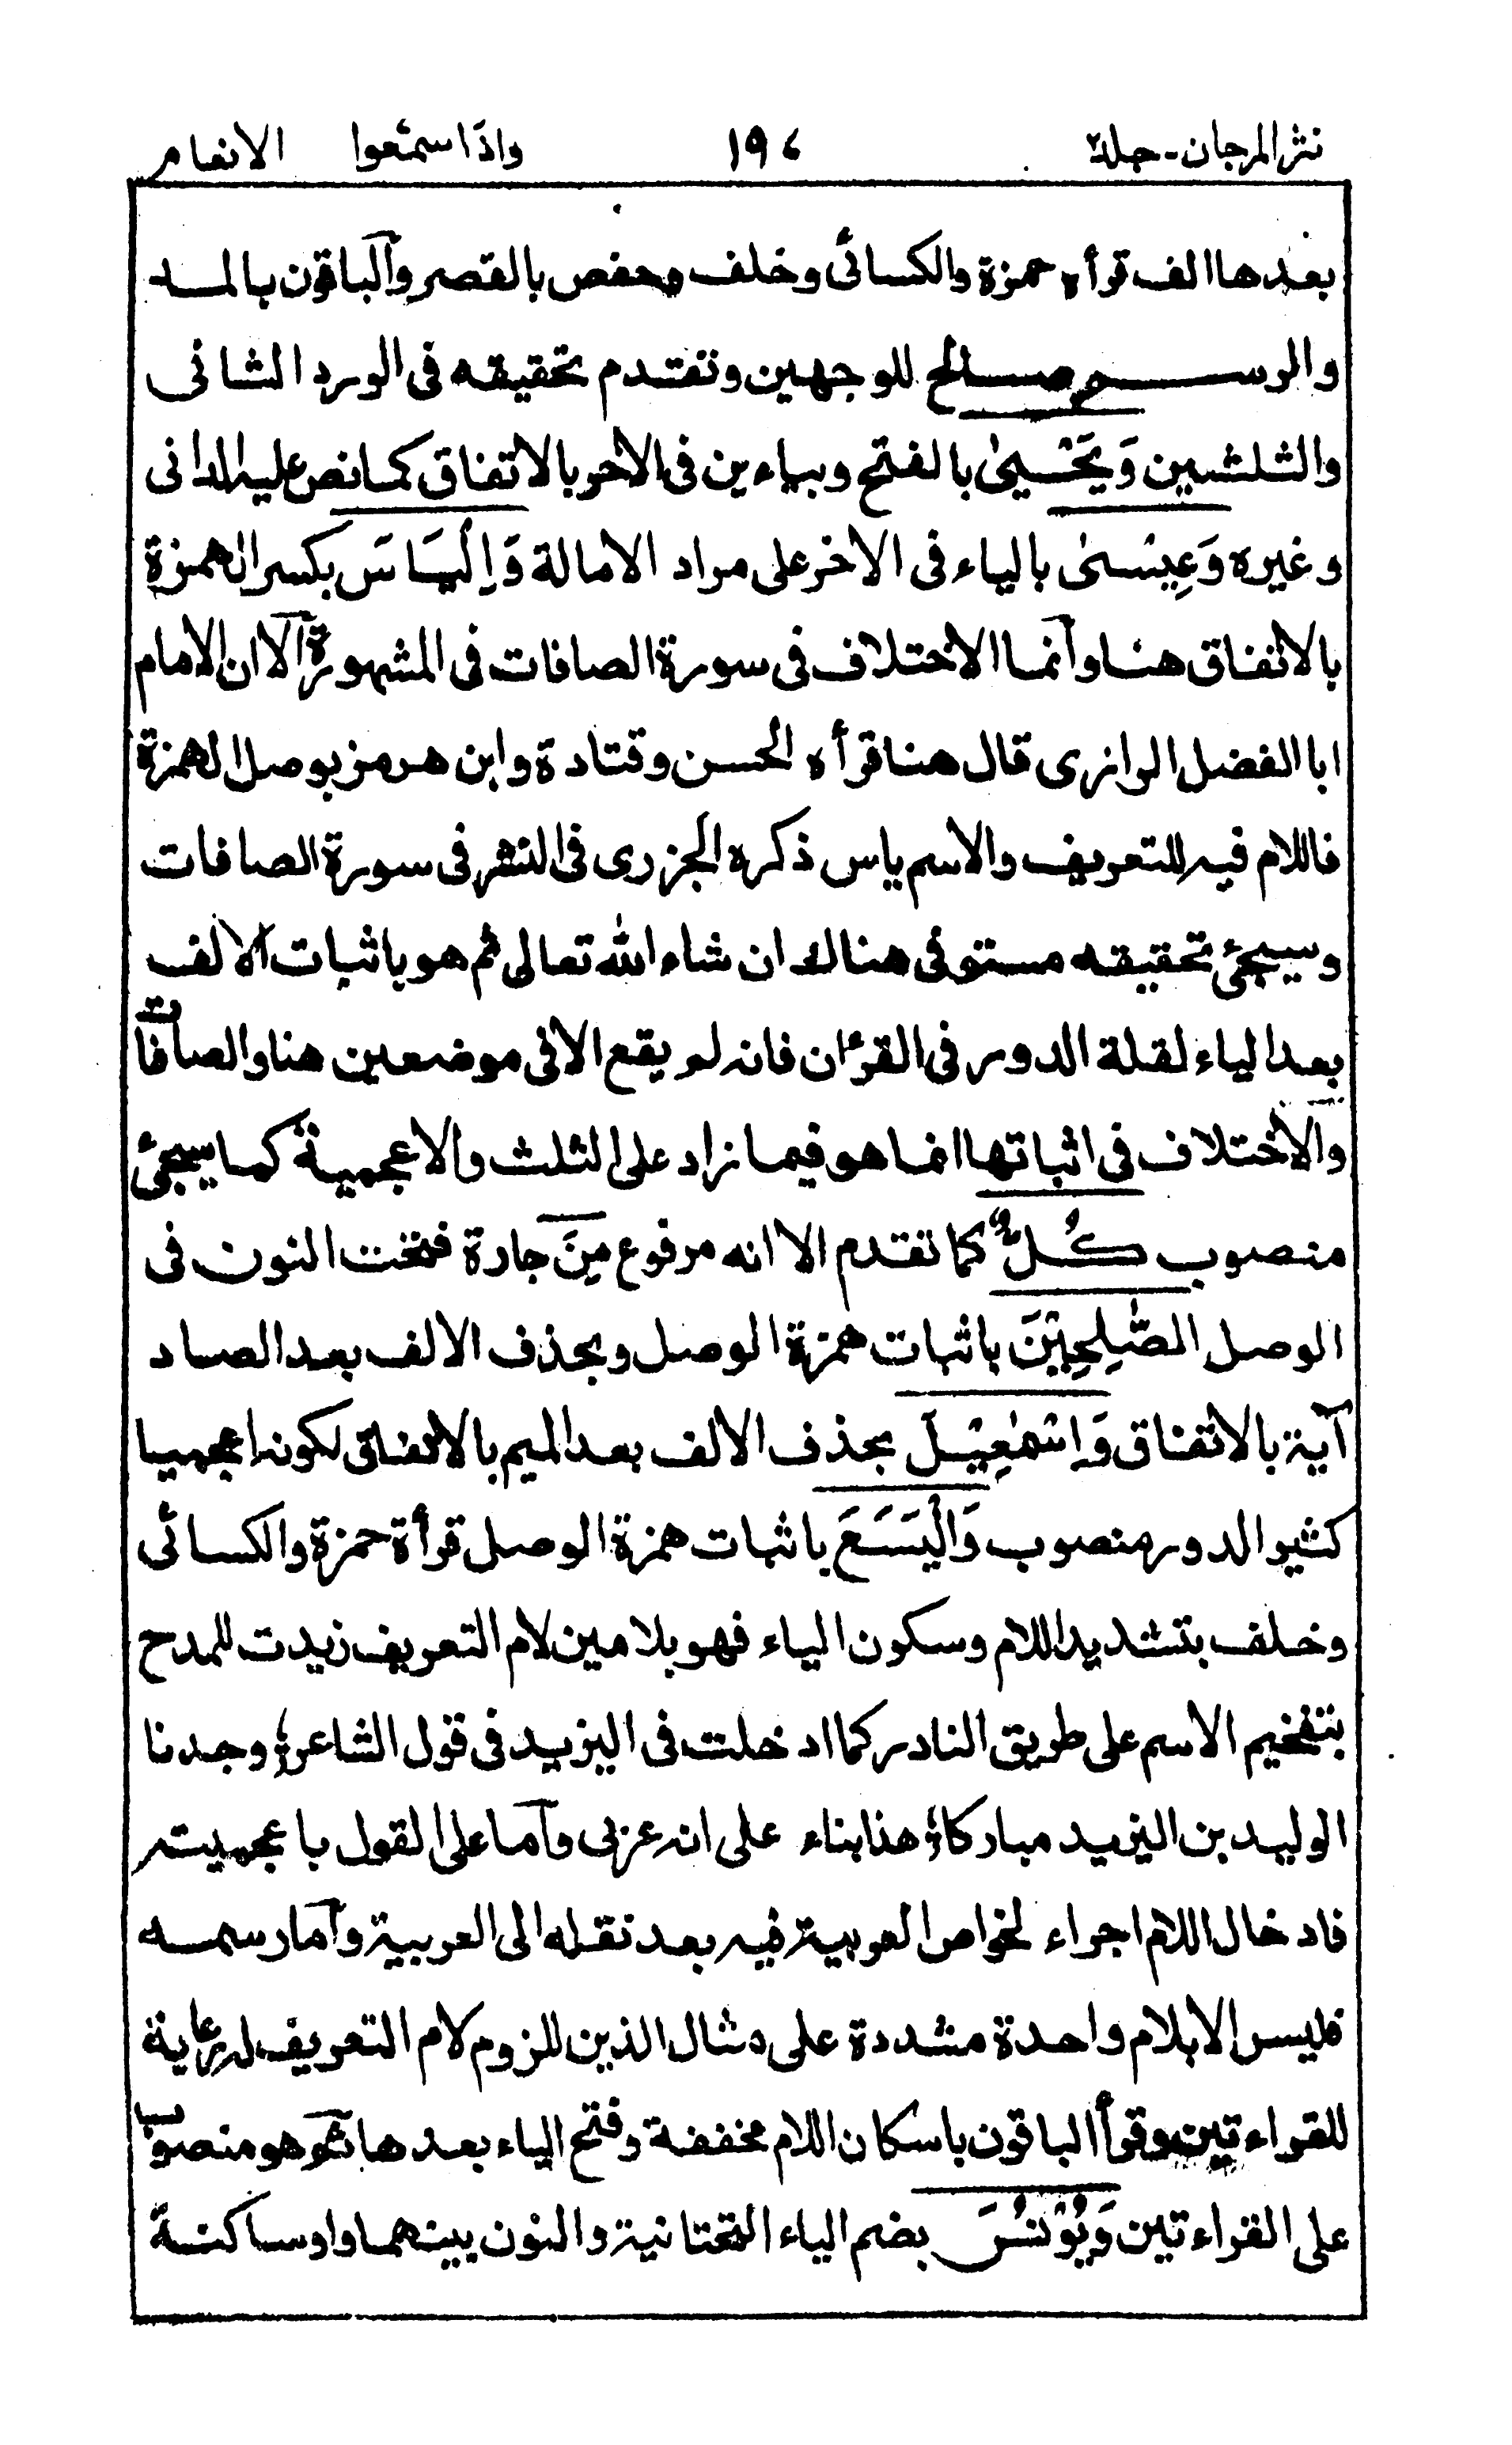 نثر المرجان - جلد۲ ١٩٧ واذا سمعوا الانعام
بعدها الف قرأه حمزة والكسائى وخلف وحفص بالقصر والباقون بالمد
والرسم صالح للوجهين وتقدم تحقيقه فى الورد الثانى
والثلثين وَيَحْيىٰ بالفتح وبياءين فى الاخر بالاتفاق كما نص عليه الدانى
وغيره وَعِيْسىٰ بالياء فى الاخر على مراد الامالة وَاِلْيَاسَ بكسر الهمزة
بالاتفاق هنا وانما الاختلاف فى سورة الصافات فى المشهورة الا ان الامام
ابا الفضل الرازى قال هنا قرأه الحسن وقتادة وابن هرمز بوصل الهمزة
فاللام فيه للتعريف والاسم ياس ذكره الجزرى فى النشر فى سورة الصافات
وسيجئ تحقيقه مستوفى هناك ان شاء الله تعالى ثم هو باثبات الالف
بعد الياء لقلة الدور فى القرءان فانه لم يقع الا فى موضعين هنا والصافات
والاختلاف فى اثباتها انما هو فيما زاد على الثلث والاعجمية كما سيجئ
منصوب كُلٌّ كما تقدم الا انه مرفوع مِنَ جارة فتحت النون فى
الوصل الصّٰلِحِيْنَ باثبات همزة الوصل وبحذف الالف بعد الصاد
آية بالاتفاق وَاِسْمٰعِيْلَ بحذف الالف بعد الميم بالاتفاق لكونه اعجميا
كثير الدور منصوب وَالْيَسَعَ باثبات همزة الوصل قرأة حمزة والكسائى
وخلف بتشديد اللام وسكون الياء فهو بلامين لام التعريف زيدت للمدح
بتفخيم الاسم على طريق النادر كما ادخلت فى اليزيد فى قول الشاعر؏ وجدنا
الوليد بن اليزيد مباركا؏ هذا بناء على انه عربى واما على القول باعجميته
فادخال اللام اجراء لخواص العربية فيه بعد نقله الى العربية واما رسمه
فليس الا بلام واحدة مشددة على مثال الذين للزوم لام التعريف لرعاية
للقراءتين وقرأ الباقون باسكان اللام مخففة وفتح الياء بعدها ثم هو منصوب
على القراءتين وَيُوْنُسَ بضم الياء التحتانية والنون بينهما واو ساكنة